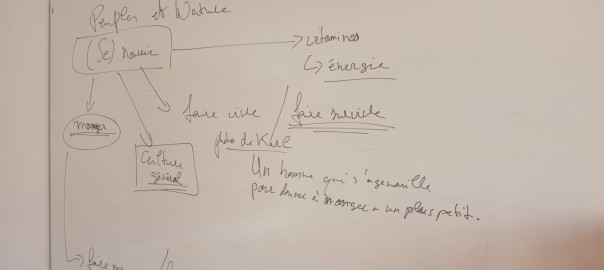 Peuples et Nature
(Se) nourrir
vitamines
énergie
manger
faire vivre / faire survivre
photo de Karl
Culture
général
Un homme qui s'agenouille
pour donner à manger a un plus petit.
faire